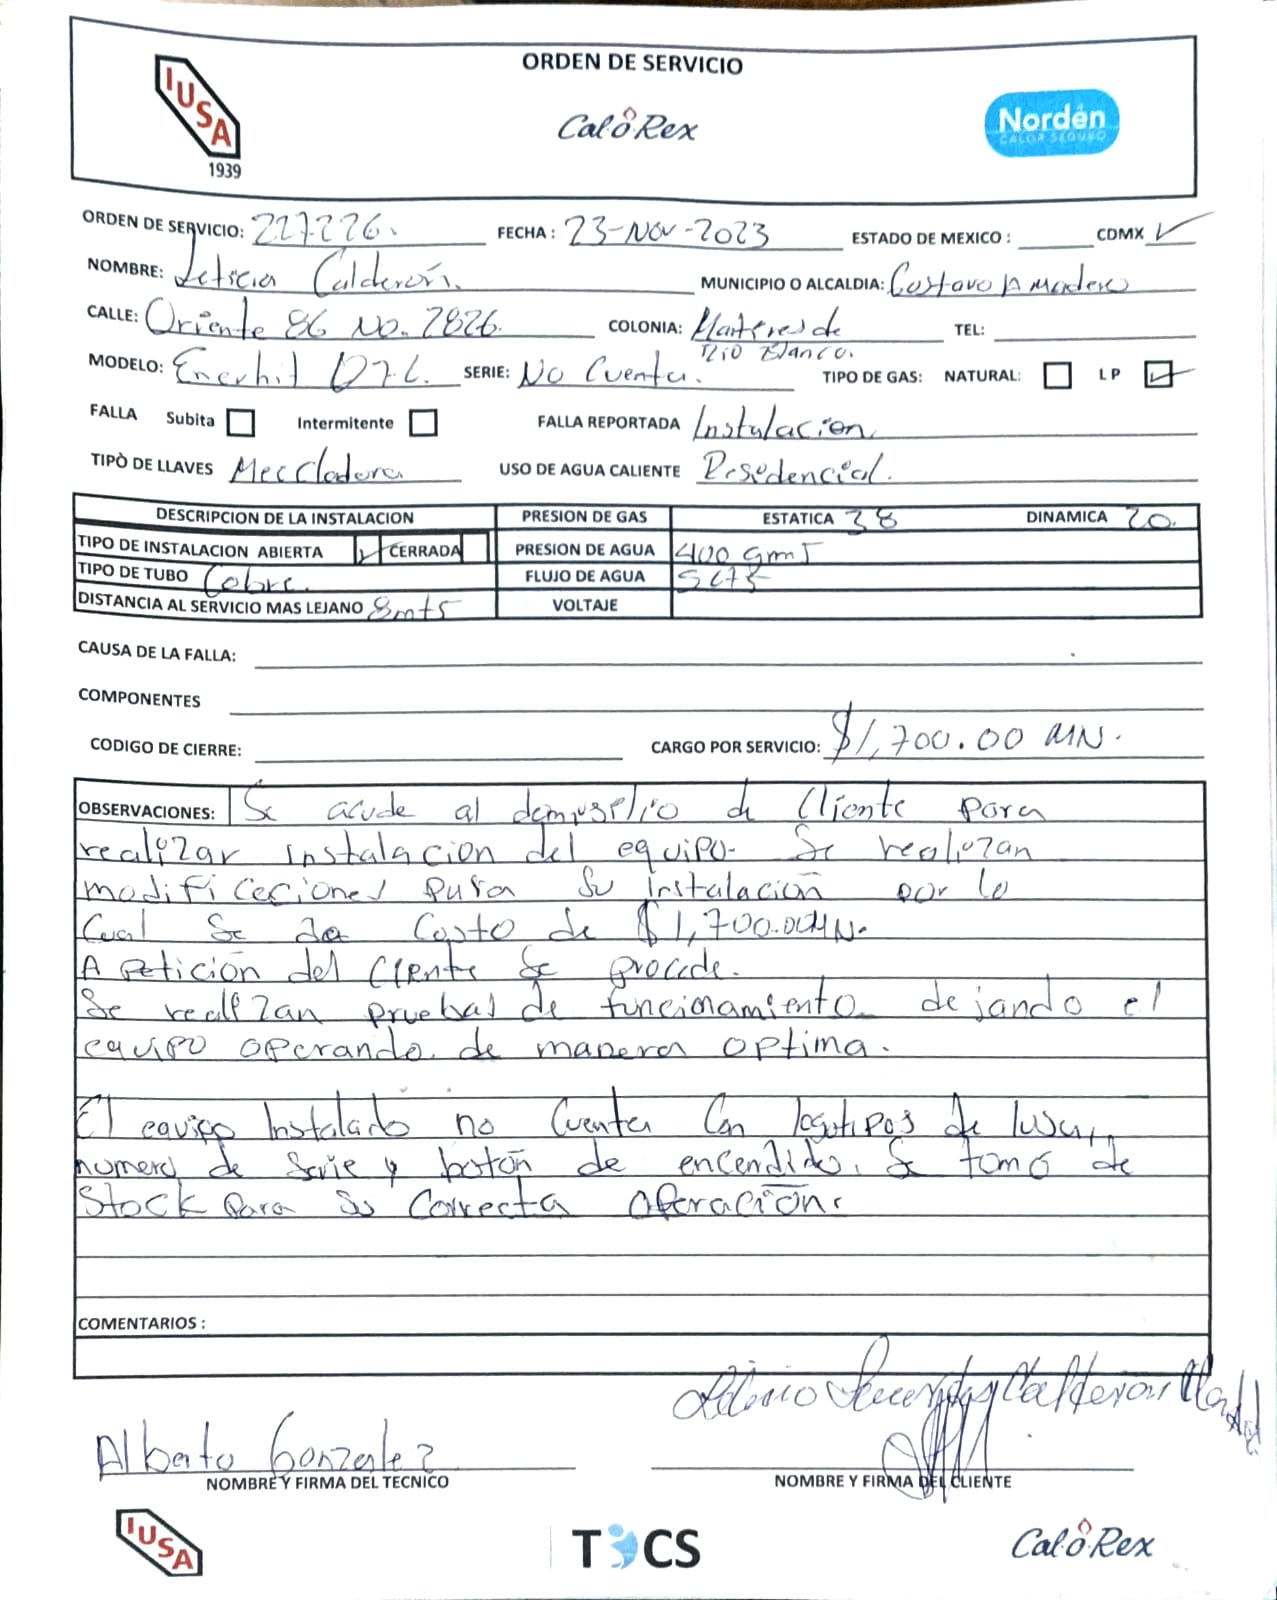 ORDEN DE SERVICIO
IUSA
1939
CaloRex
Nordén
CALOR SEGURO
ORDEN DE SERVICIO: 227226. FECHA: 23-Nov-2023 ESTADO DE MEXICO: CDMX ✓
NOMBRE: Leticia Calderón. MUNICIPIO O ALCALDIA: Gustavo A Madero
CALLE: Oriente 86 No. 2826. COLONIA: Martires de TEL:
Rio Blanco.
MODELO: Enerhit 07L. SERIE: No Cuenta. TIPO DE GAS: NATURAL: LP ✓
FALLA Subita Intermitente FALLA REPORTADA Instalacion
TIPÒ DE LLAVES Meccladora USO DE AGUA CALIENTE Resedencial.
DESCRIPCION DE LA INSTALACION PRESION DE GAS ESTATICA 38 DINAMICA 20.
TIPO DE INSTALACION ABIERTA ✓ CERRADA PRESION DE AGUA 400 gm
TIPO DE TUBO Cobre. FLUJO DE AGUA
DISTANCIA AL SERVICIO MAS LEJANO 8mts VOLTAJE
CAUSA DE LA FALLA:
COMPONENTES
CODIGO DE CIERRE: CARGO POR SERVICIO: $1,700.00 MN.
OBSERVACIONES: Se acude al de Cliente para
realizar instalacion del equipo. Se realizan
modificeciones para su instalación por lo
Cual se da Costo de $1,700.00MN.
A peticion del Cliente se procede.
Se realizan pruebas de funcionamiento dejando el
equipo operando. de manera optima.
El equipo Instalado no Cuenta Con logotipos de Iusa,
numero de Serie y botón de encendido. Se tomó de
Stock para su Correcta operación.
COMENTARIOS:
Calderon
Alberto Gonzalez
NOMBRE Y FIRMA DEL TECNICO NOMBRE Y FIRMA DEL CLIENTE
IUSA
TOCS
CaloRex